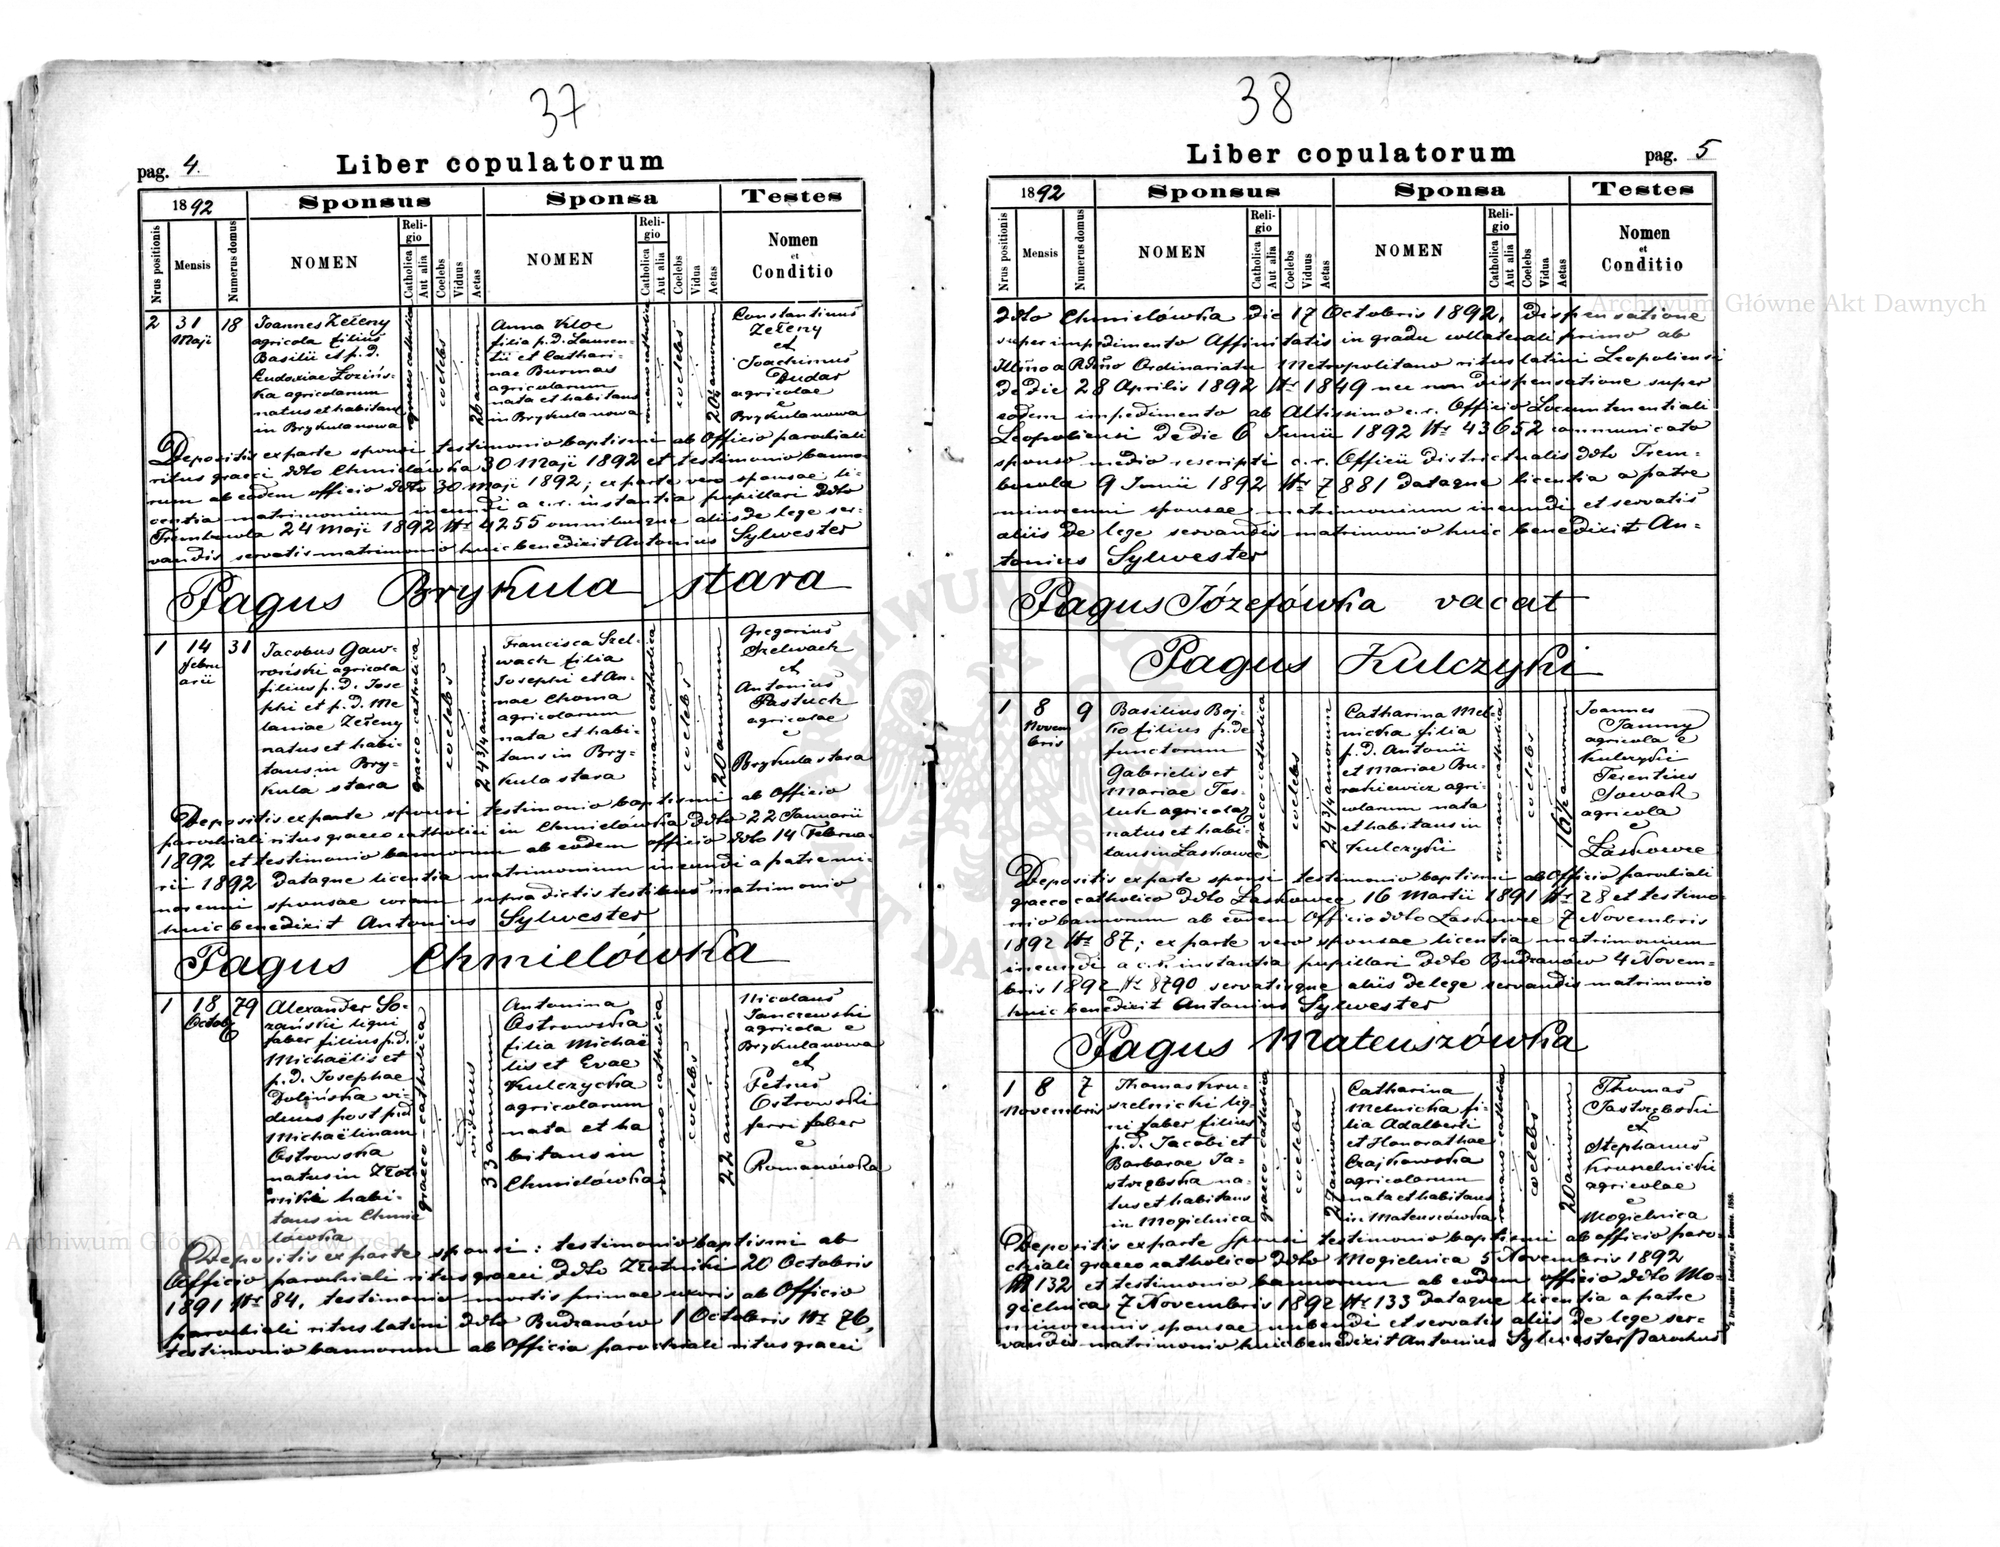 37
pag. 4.
Liber copulatorum
1892
Sponsus
Sponsa
Testes
Nrus positionis
Mensis
Numerus domus
NOMEN
Religio
Catholica
Aut alia
Coelebs
Viduus
Aetas
NOMEN
Religio
Catholica
Aut alia
Coelebs
Vidua
Aetas
Nomen
et
Conditio
2
31
Maji
18
Joannes Zełeny
agricola filius
Basilii et p.d.
Eudoxiae Łozińs-
ka agricolarum
natus et habitans
in Brykula nowa
graeco catholica
coelebs
26 annorum
Anna Kloc
filia p.d. Lauren-
tii et Cathari-
nae Burmas
agricolarum
nata et habitans
in Brykula nowa
romano catholica
coelebs
20½ annorum
Constantinus
Zełeny
et
Joachimus
Dudar
agricolae
e
Brykula nowa
Depositis ex parte sponsi testimonio baptismi ab Officio parochiali
ritus graeci ddto Chmielówka 30 Maji 1892 et testimonio banno-
rum ab eodem officio ddto 30 Maji 1892; ex parte vero sponsae li-
centia matrimonium ineundi a c.r. instantia pupillari ddto
Trembowla 24 Maji 1892 Nr 4255 omnibusque aliis de lege ser-
vandis servatis matrimonio huic benedixit Antonius Sylwester
Pagus Brykula stara
1
14
Febru
arii
31
Jacobus Gaw-
roński agricola
filius p.d. Jose
phi et p.d. Me
laniae Zełeny
natus et habi-
tans in Bry-
kula stara
graeco-catholica
coelebs
24 3/4 annorum
Francisca Szel-
wach filia
Josephi et An-
nae Choma
agricolarum
nata et habi-
tans in Bry-
kula stara
romano catholica
coelebs
20 annorum
Gregorius
Szelwach
et
Antonius
Pastuch
agricolae
e
Brykula stara
Depositis ex parte sponsi testimonio baptismi ab Officio
parochiali ritus graeco catholici in Chmielówka ddto 22 Januarii
1892 et testimonio bannorum ab eodem officio ddto 14 Februa-
rii 1892 dataque licentia matrimonium ineundi a patre mi-
norenni sponsae coram supradictis testibus matrimonio
huic benedixit Antonius Sylwester
Pagus Chmielówka
1
18
Octob
79
Alexander Ło-
zański ligni
faber filius p.d.
Michaëlis et
p.d. Josephae
Dolińska vi-
duus post p.d.
Michaëlinam
Ostrowska
natus in Złot
niki habi-
tans in Chmie
lówka
graeco-catholica
viduus
33 annorum
Antonina
Ostrowska
filia Michaë
lis et Evae
Kulczycka
agricolarum
nata et ha
bitans in
Chmielówka
romano-catholica
coelebs
22 annorum
Nicolaus
Janczewski
agricola e
Brykula nowa
et
Petrus
Ostrowski
ferri faber
e
Romanówka
Depositis ex parte sponsi: testimonio baptismi ab
Officio parochiali ritus graeci ddto Złotniki 20 Octobris
1891 Nr 84, testimonio mortis primae uxoris ab Officio
parochiali ritus latini ddto Budzanów 1 Octobris Nr 76,
testimonio bannorum ab Officio parochiali ritus graeci
38
Liber copulatorum
pag. 5
1892
Sponsus
Sponsa
Testes
Nrus positionis
Mensis
Numerus domus
NOMEN
Religio
Catholica
Aut alia
Coelebs
Viduus
Aetas
NOMEN
Religio
Catholica
Aut alia
Coelebs
Vidua
Aetas
Nomen
et
Conditio
ddto Chmielówka die 17 Octobris 1892, dispensatione
super impedimento Affinitatis in gradu collaterali primo ab
Illmo a Rdmo Ordinariatu Metropolitano ritus latini Leopoliensi
de die 28 Aprilis 1892 Nr 1849 nec non dispensatione super
eodem impedimento ab Altissimo c.r. Officio Locumtenentiali
Leopoliensi de die 6 Junii 1892 Nr 43652 communicato
sponso medio rescripti c.r. Officii districtualis ddto Trem-
bowla 9 Junii 1892 Nr 7881 dataque licentia a patre
minorenni sponsae matrimonium ineundi et servatis
aliis de lege servandis matrimonio huic benedixit An-
tonius Sylwester
Pagus Józefówka vacat
Pagus Kulczyki
1
8
Novem
bris
9
Basilius Boj-
ko filius p.de
functorum
Gabrielis et
Mariae Tes-
luk agricola
natus et habi-
tans in Laskowce
graeco-catholica
coelebs
24 3/4 annorum
Catharina Mel-
nicka filia
p.d. Antonii
et Mariae Bu-
rakiewicz agri-
colarum nata
et habitans in
Kulczyki
romano-catholica
coelebs
16½ annorum
Joannes
Tammy
agricola e
Kulczyki
Terentius
Sowak
agricola
e
Laskowce
Depositis ex parte sponsi testimonio baptismi ab Officio parochiali
graeco catholico ddto Laskowce 16 Martii 1891 Nr 28 et testimo-
nio bannorum ab eodem Officio ddto Laskowce 7 Novembris
1892 Nr 87; ex parte vero sponsae licentia matrimonium
ineundi a c.r. instantia pupillari ddto Budzanów 4 Novem-
bris 1892 Nr 8790 servatisque aliis de lege servandis matrimonio
huic benedixit Antonius Sylwester
Pagus Mateuszówka
1
8
Novembris
7
Thomas Kru-
szelnicki lig-
ni faber filius
p.d. Jacobi et
Barbarae Ja-
strzębska na-
tus et habitans
in Mogielnica
graeco-catholica
coelebs
27 annorum
Catharina
Melnicka fi-
lia Adalberti
et Honorathae
Czajkowska
agricolarum
nata et habitans
in Mateuszówka
romano-catholica
coelebs
20 annorum
Thomas
Jastrzębski
et
Stephanus
Kruszelnicki
agricolae
e
Mogielnica
Depositis ex parte sponsi testimonio baptismi ab officio paro-
chiali graeco catholico ddto Mogielnica 5 Novembris 1892
Nr 132 et testimonio bannorum ab eodem officio ddto Mo-
gielnica 7 Novembris 1892 Nr 133 dataque licentia a patre
minorennis sponsae nubendi et servatis aliis de lege ser-
vandis matrimonio huic benedixit Antonius Sylwester Parochus
Archiwum Główne Akt Dawnych
Archiwum Główne Akt Dawnych